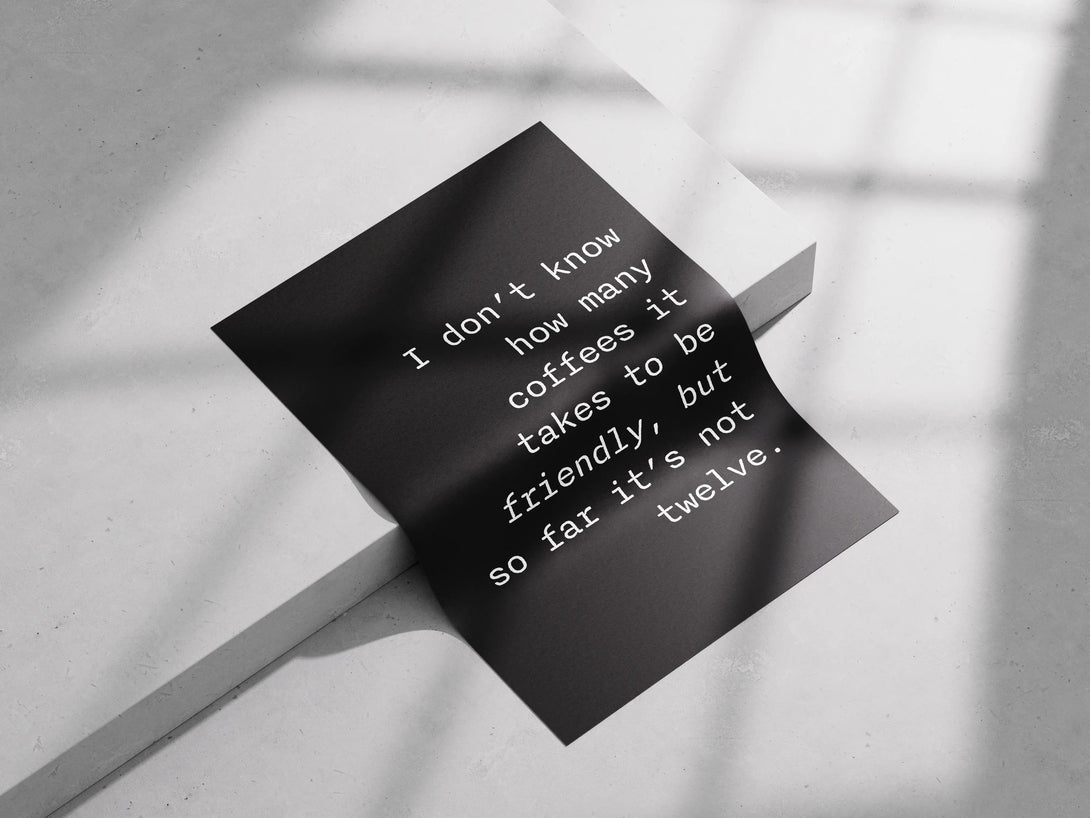 I don't know
how many
coffees it
takes to be
friendly, but
so far it's not
twelve.